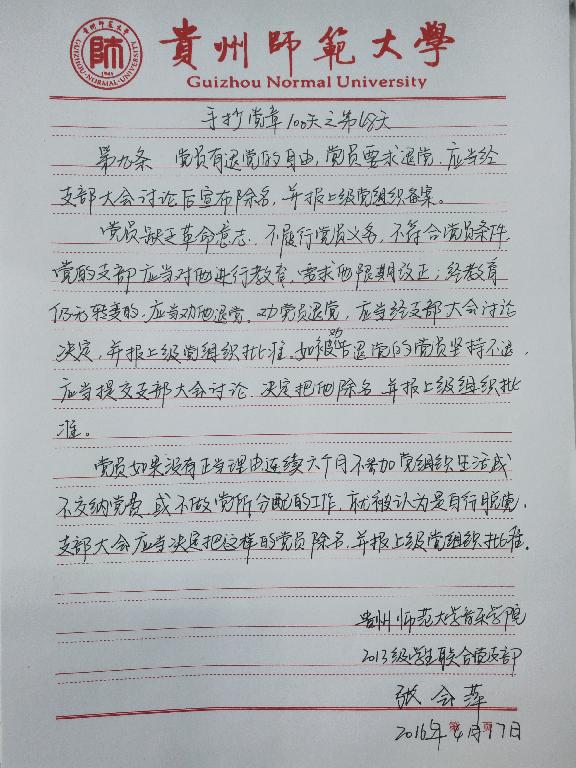 貴州師範大學
Guizhou Normal University
贵州师范大学
師
1941
GUIZHOU·NORMAL·UNIVERSITY
手抄党章100天之第68天
第九条 党员有退党的自由,党员要求退党,应当经
支部大会讨论后宣布除名,并报上级党组织备案。
党员缺乏革命意志,不履行党员义务,不符合党员条件,
党的支部应当对他进行教育,要求他限期改正;经教育
仍无转变的,应当劝他退党。劝党员退党,应当经支部大会讨论
决定,并报上级党组织批准。如被劝告退党的党员坚持不退,
应当提交支部大会讨论,决定把他除名,并报上级组织批
准。
党员如果没有正当理由,连续六个月不参加党组织生活或
不交纳党费,或不做党所分配的工作,就被认为是自行脱党,
支部大会应当决定把这样的党员除名,并报上级党组织批准。
贵州师范大学音乐学院
2013级学生联合党支部
张会萍
2016年4月17日
第 页